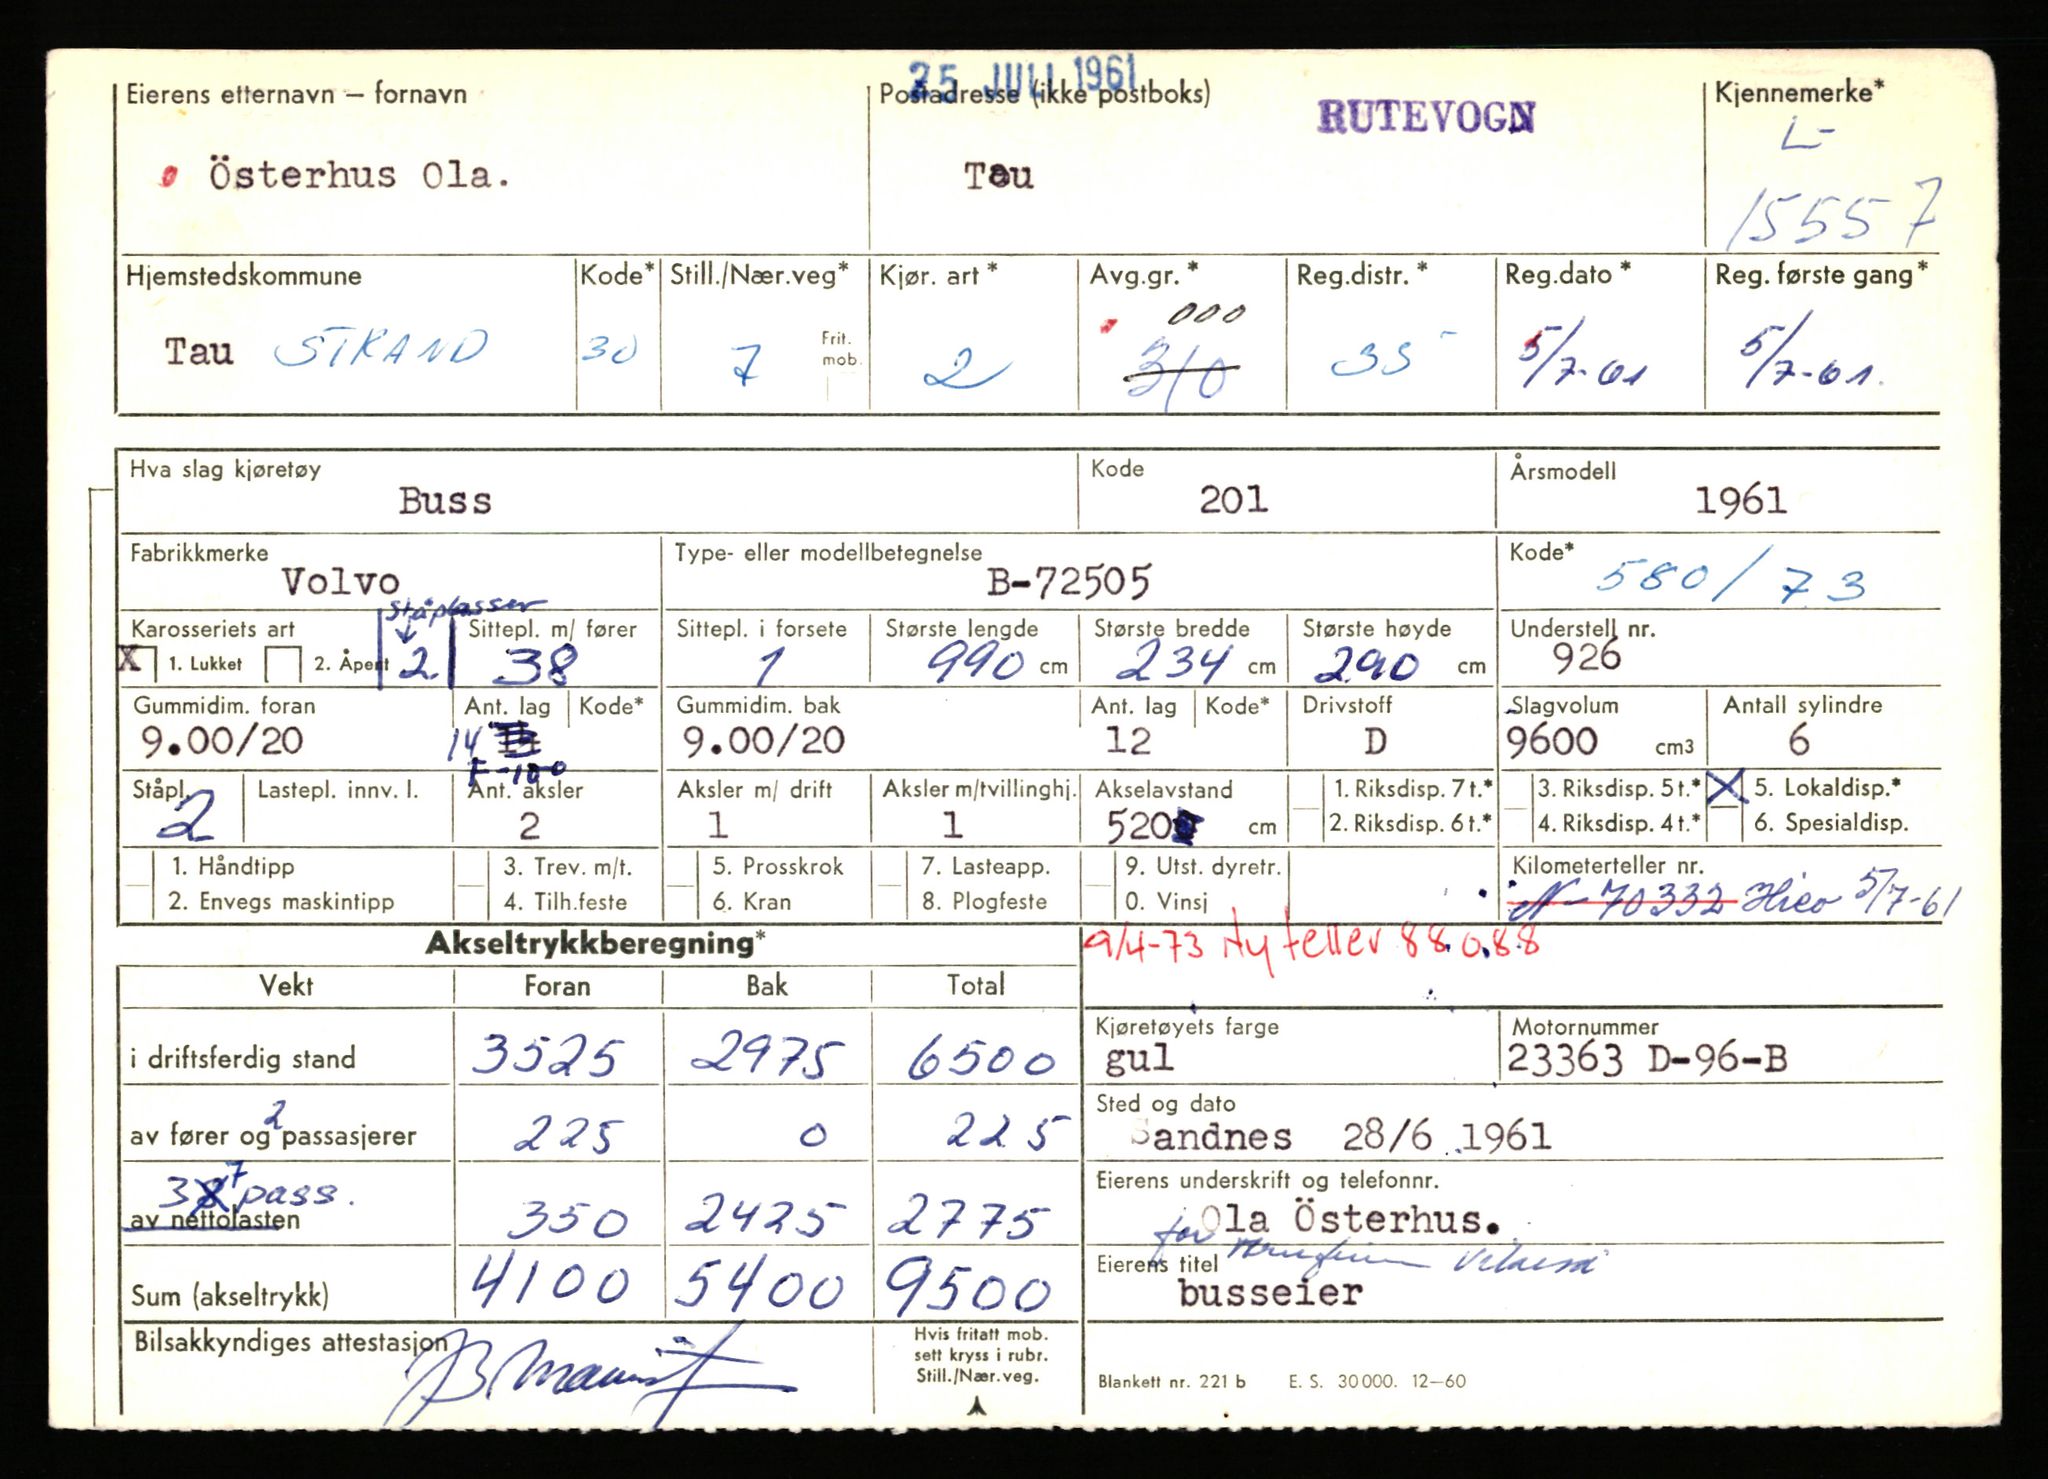 25 JULI 1961
Eierens etternavn — fornavn
Postadresse (ikke postboks)
RUTEVOGN
Kjennemerke*
L-
Österhus Ola.
Tau
15557
Hjemstedskommune
Kode*
Still./Nær.veg*
Kjør. art *
Avg.gr. *
Reg.distr. *
Reg.dato *
Reg. første gang*
Tau STRAND
30
7
Frit. mob.
2
000
310
35
5/7-61
5/7-61.
Hva slag kjøretøy
Buss
Kode
201
Årsmodell
1961
Fabrikkmerke
Volvo
Type- eller modellbetegnelse
B-72505
Kode*
580/73
Ståplasser
Karosseriets art
X 1. Lukket
2. Åpent
2
Sittepl. m/ fører
38
Sittepl. i forsete
1
Største lengde
990 cm
Største bredde
234 cm
Største høyde
290 cm
Understell nr.
926
Gummidim. foran
9.00/20
Ant. lag
14
F-100
Kode*
Gummidim. bak
9.00/20
Ant. lag
12
Kode*
Drivstoff
D
Slagvolum
9600 cm3
Antall sylindre
6
Ståpl.
2
Lastepl. innv. l.
Ant. aksler
2
Aksler m/ drift
1
Aksler m/tvillinghj.
1
Akselavstand
520 cm
1. Riksdisp. 7 t.*
2. Riksdisp. 6 t.*
3. Riksdisp. 5 t.*
4. Riksdisp. 4 t.*
X 5. Lokaldisp.*
6. Spesialdisp.
1. Håndtipp
2. Envegs maskintipp
3. Trev. m/t.
4. Tilh.feste
5. Prosskrok
6. Kran
7. Lasteapp.
8. Plogfeste
9. Utst. dyretr.
0. Vinsj
Kilometerteller nr.
N-70332 Hico 5/7-61
Akseltrykkberegning*
9/4-73 Ny teller 88088
Vekt
Foran
Bak
Total
i driftsferdig stand
3525
2975
6500
Kjøretøyets farge
gul
Motornummer
23363 D-96-B
av fører og 2 passasjerer
225
0
225
Sted og dato
Sandnes 28/6 1961
37 pass.
av nettolasten
350
2425
2775
Eierens underskrift og telefonnr.
Ola Österhus.
for
Sum (akseltrykk)
4100
5400
9500
Eierens titel
busseier
Bilsakkyndiges attestasjon
Hvis fritatt mob.
sett kryss i rubr.
Still./Nær.veg.
Blankett nr. 221 b E. S. 30000. 12—60